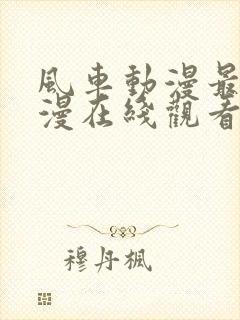 風車動漫最
漫在綫觀看
穆丹楓